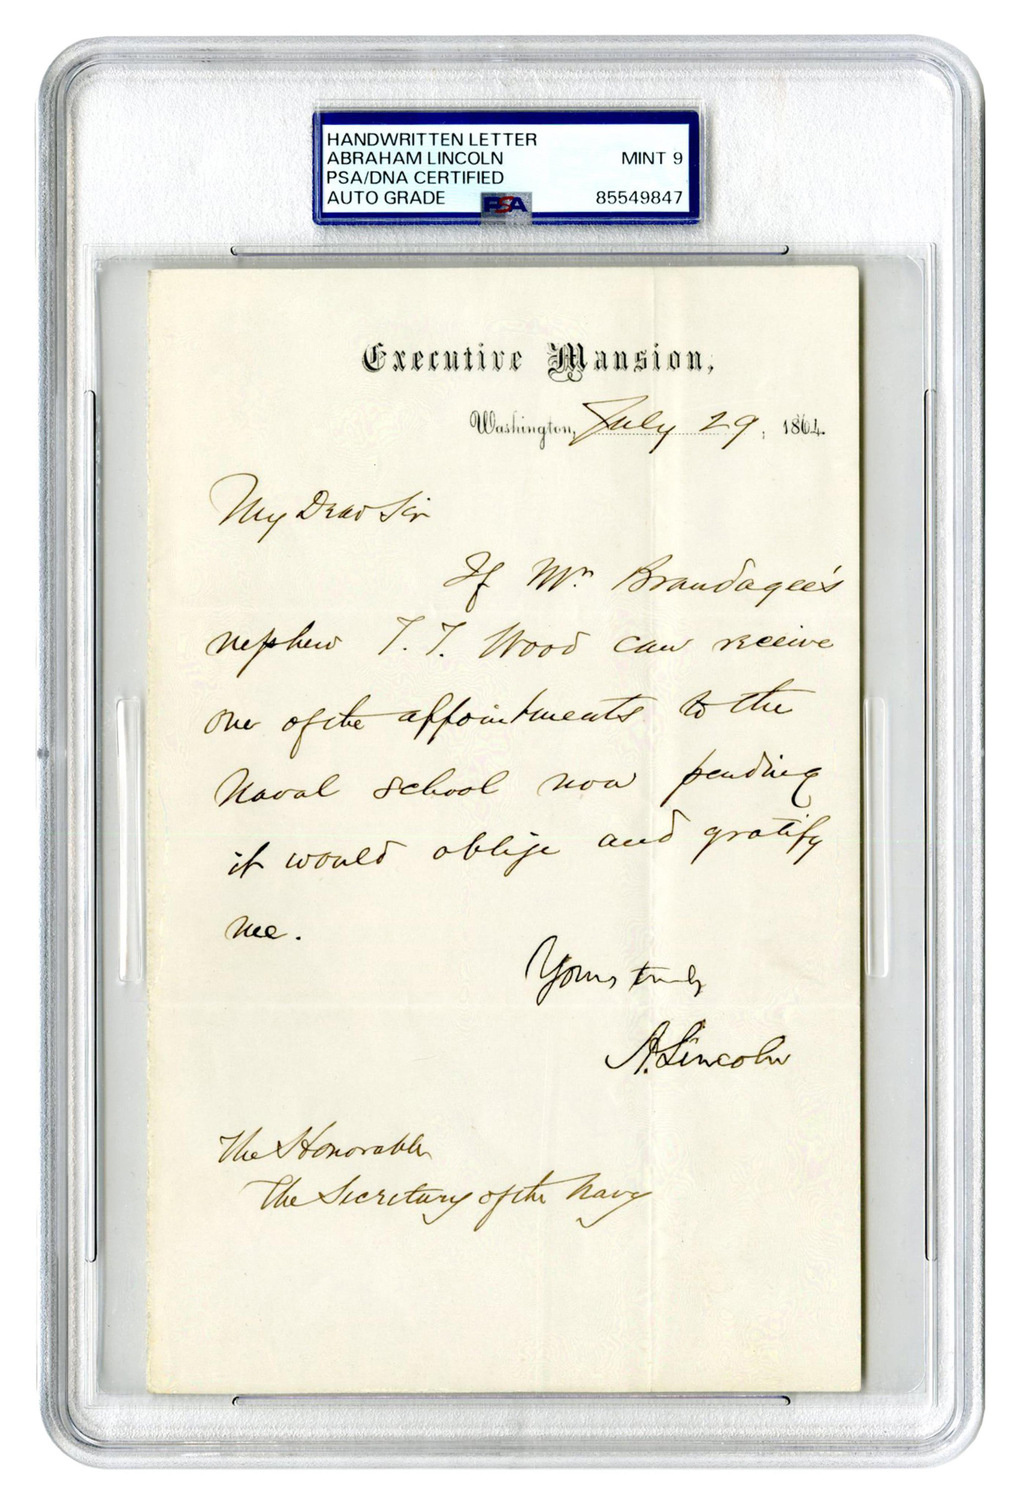 HANDWRITTEN LETTER
ABRAHAM LINCOLN MINT 9
PSA/DNA CERTIFIED
AUTO GRADE PSA 85549847
Executive Mansion,
Washington, July 29, 1864.
My Dear Sir
If Mr. Brandagee's
nephew T. T. Wood can receive
one of the appointments to the
Naval school now pending
it would oblige and gratify
me.
Yours truly
A. Lincoln
The Honorable
The Secretary of the Navy